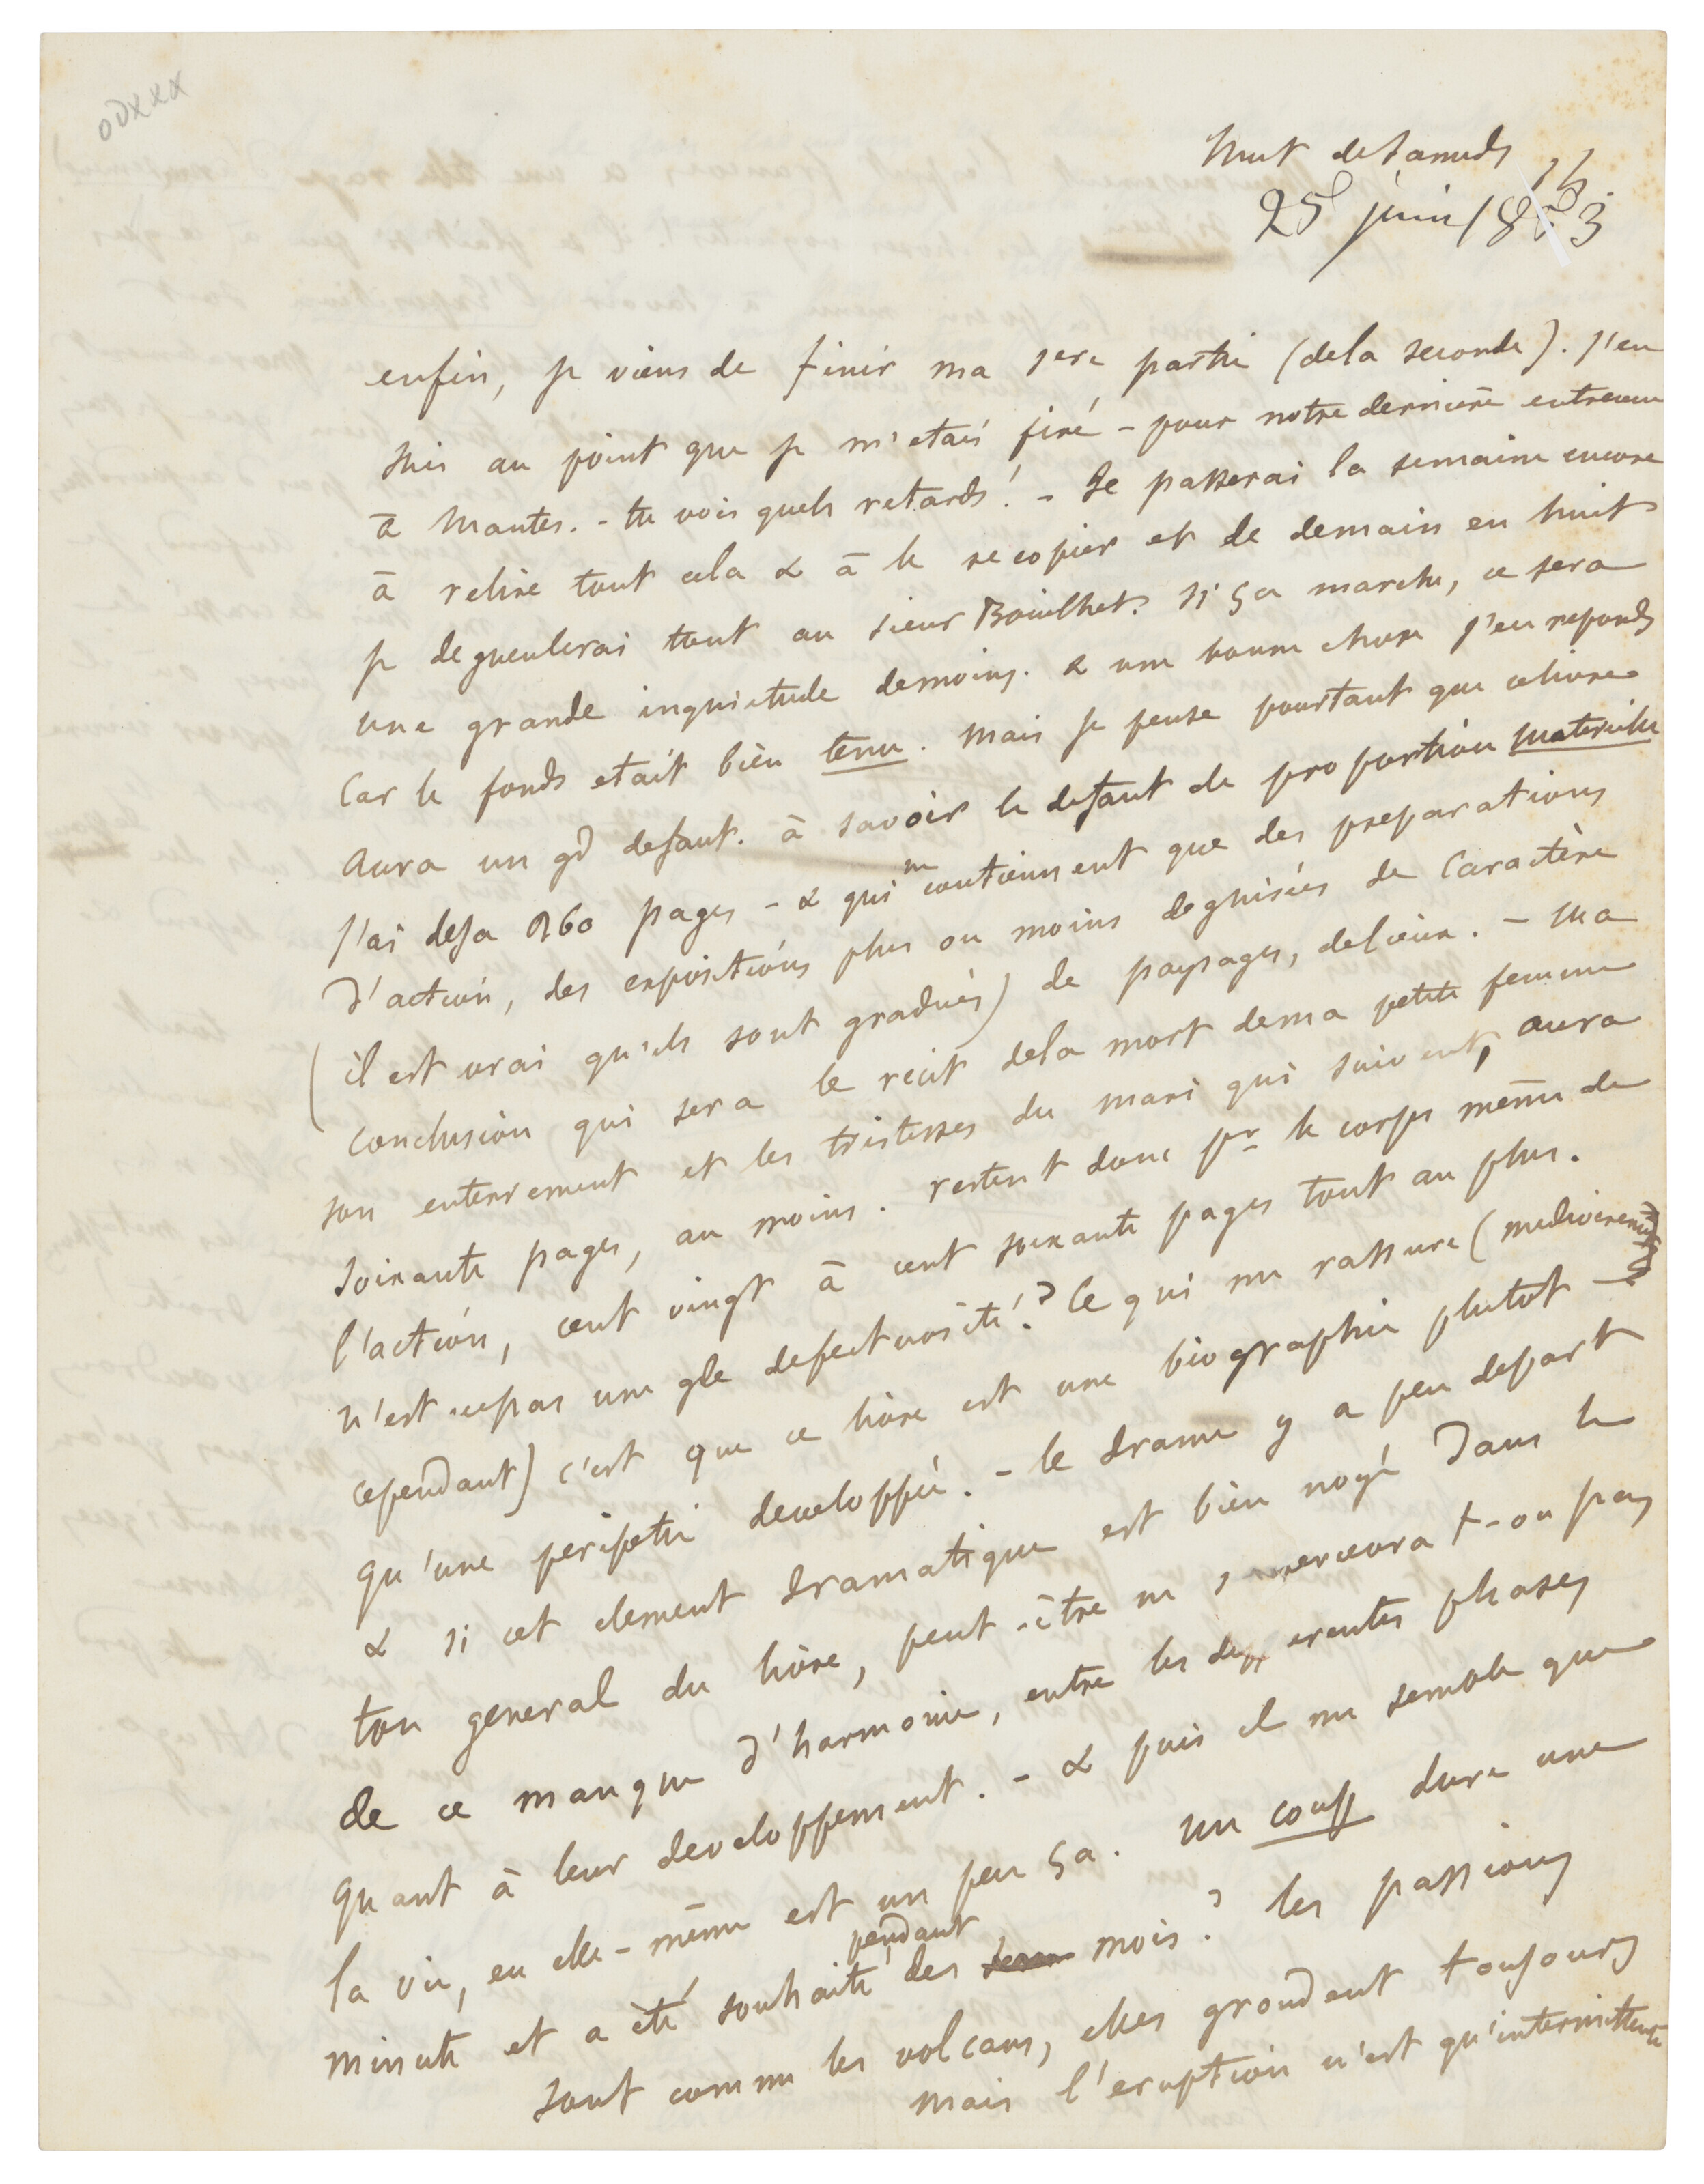 Nuit de samedi 1 h.
25 juin 1853
enfin, je viens de finir ma 1ere partie (de la seconde). j'en
suis au point que je m'etais fixé - pour notre derniere entrevue
à Mantes. - tu vois quels retards! - Je passerai la semaine encore
à relire tout cela & à le recopier et de demain en huit
je degueulerai tout au sieur Bouilhet. si ça marche, ce sera
une grande inquietude de moins. & une bonne chose j'en reponds
Car le fonds etait bien tenu. Mais je pense pourtant que ce livre
Aura un gd defaut. à savoir le defaut de proportion materielle
J'ai deja 260 pages - & qui ne contiennent que des preparations
d'action, des expositions plus ou moins deguisées de Caractère
(il est vrai qu'ils sont gradués) de paysages, de lieux. - Ma
conclusion qui sera le recit de la mort de ma petite femme
son enterrement et les tristesses du mari qui suivent, aura
Soixante pages, au moins. restent donc pr le corps même de
l'action, cent vingt à cent soixante pages tout au plus.
n'est-ce pas une gde defectuosité? Ce qui me rassure (mediocrement
cependant) c'est que ce livre est une biographie plutot
qu'une peripetie developpée. - le drame y a peu de part
& si cet element dramatique est bien noyé dans le
ton general du livre, peut-être ne s'apercevra t-on pas
de ce manque d'harmonie, entre les differentes phases
quant à leur developpement. - & puis il me semble que
la vie, en elle-même est un peu ça. Un coup dure une
minute et a été souhaité pendant des mois? les passions
sont comme les volcans, elles grondent toujours
mais l'eruption n'est qu'intermittente